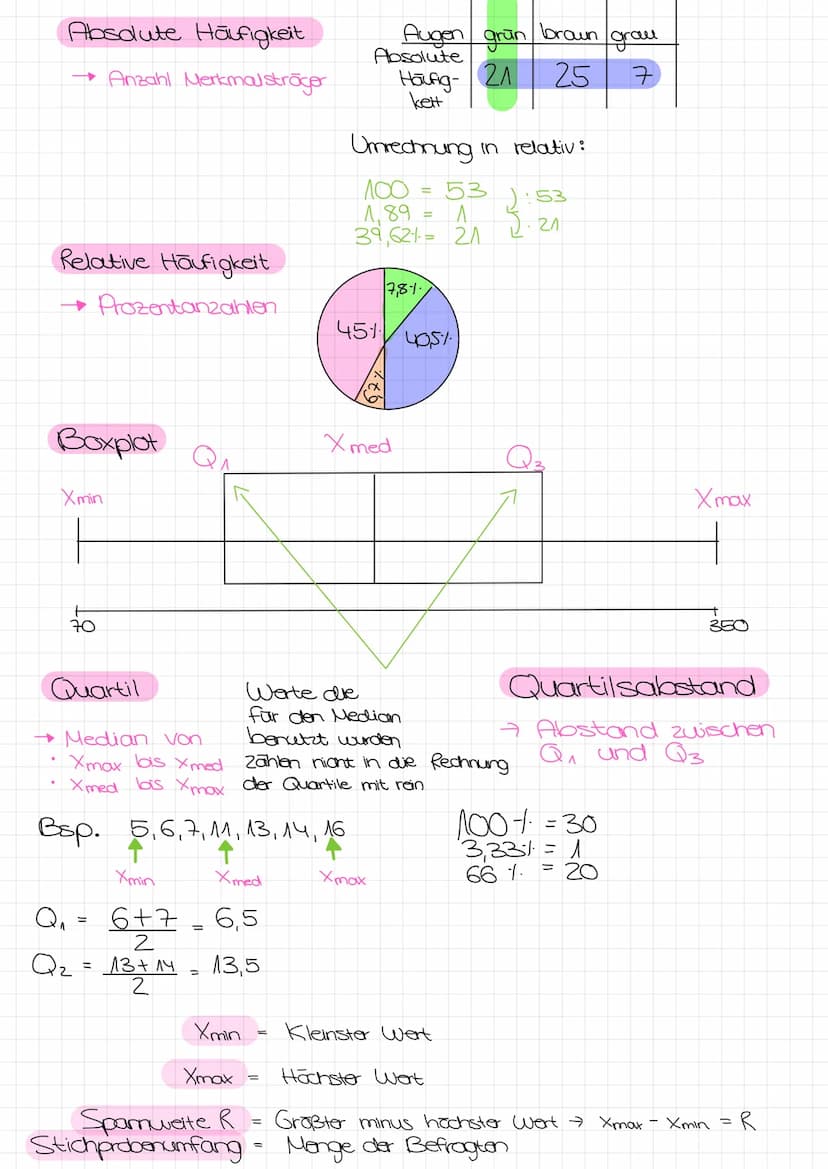 Absolute Häufigkeit
→ Anzahl Merkmalsträger
Augen grün braun grau
Absolute
Häufig-
keit
21 25 7
Umrechnung in relativ:
100 = 53
1,89 = 1
39,62% = 21
: 53
· 21
Relative Häufigkeit
→ Prozentanzahlen
7,8%
45%
40,5%
6,7%
Boxplot
Q1 Xmed Q3
Xmin Xmax
70 350
Quartil
→ Median von
· Xmax bis Xmed
· Xmed bis Xmax
Werte die
für den Median
benutzt wurden
zählen nicht in die Rechnung
der Quartile mit rein
Quartilsabstand
→ Abstand zwischen
Q1 und Q3
Bsp. 5, 6, 7, 11, 13, 14, 16
Xmin Xmed Xmax
100% = 30
3,33% = 1
66% = 20
Q1 = 6+7/2 = 6,5
Q2 = 13+14/2 = 13,5
Xmin = Kleinster Wert
Xmax = Höchster Wert
Spannweite R = Größter minus höchster Wert → Xmax - Xmin = R
Stichprobenumfang = Menge der Befragten